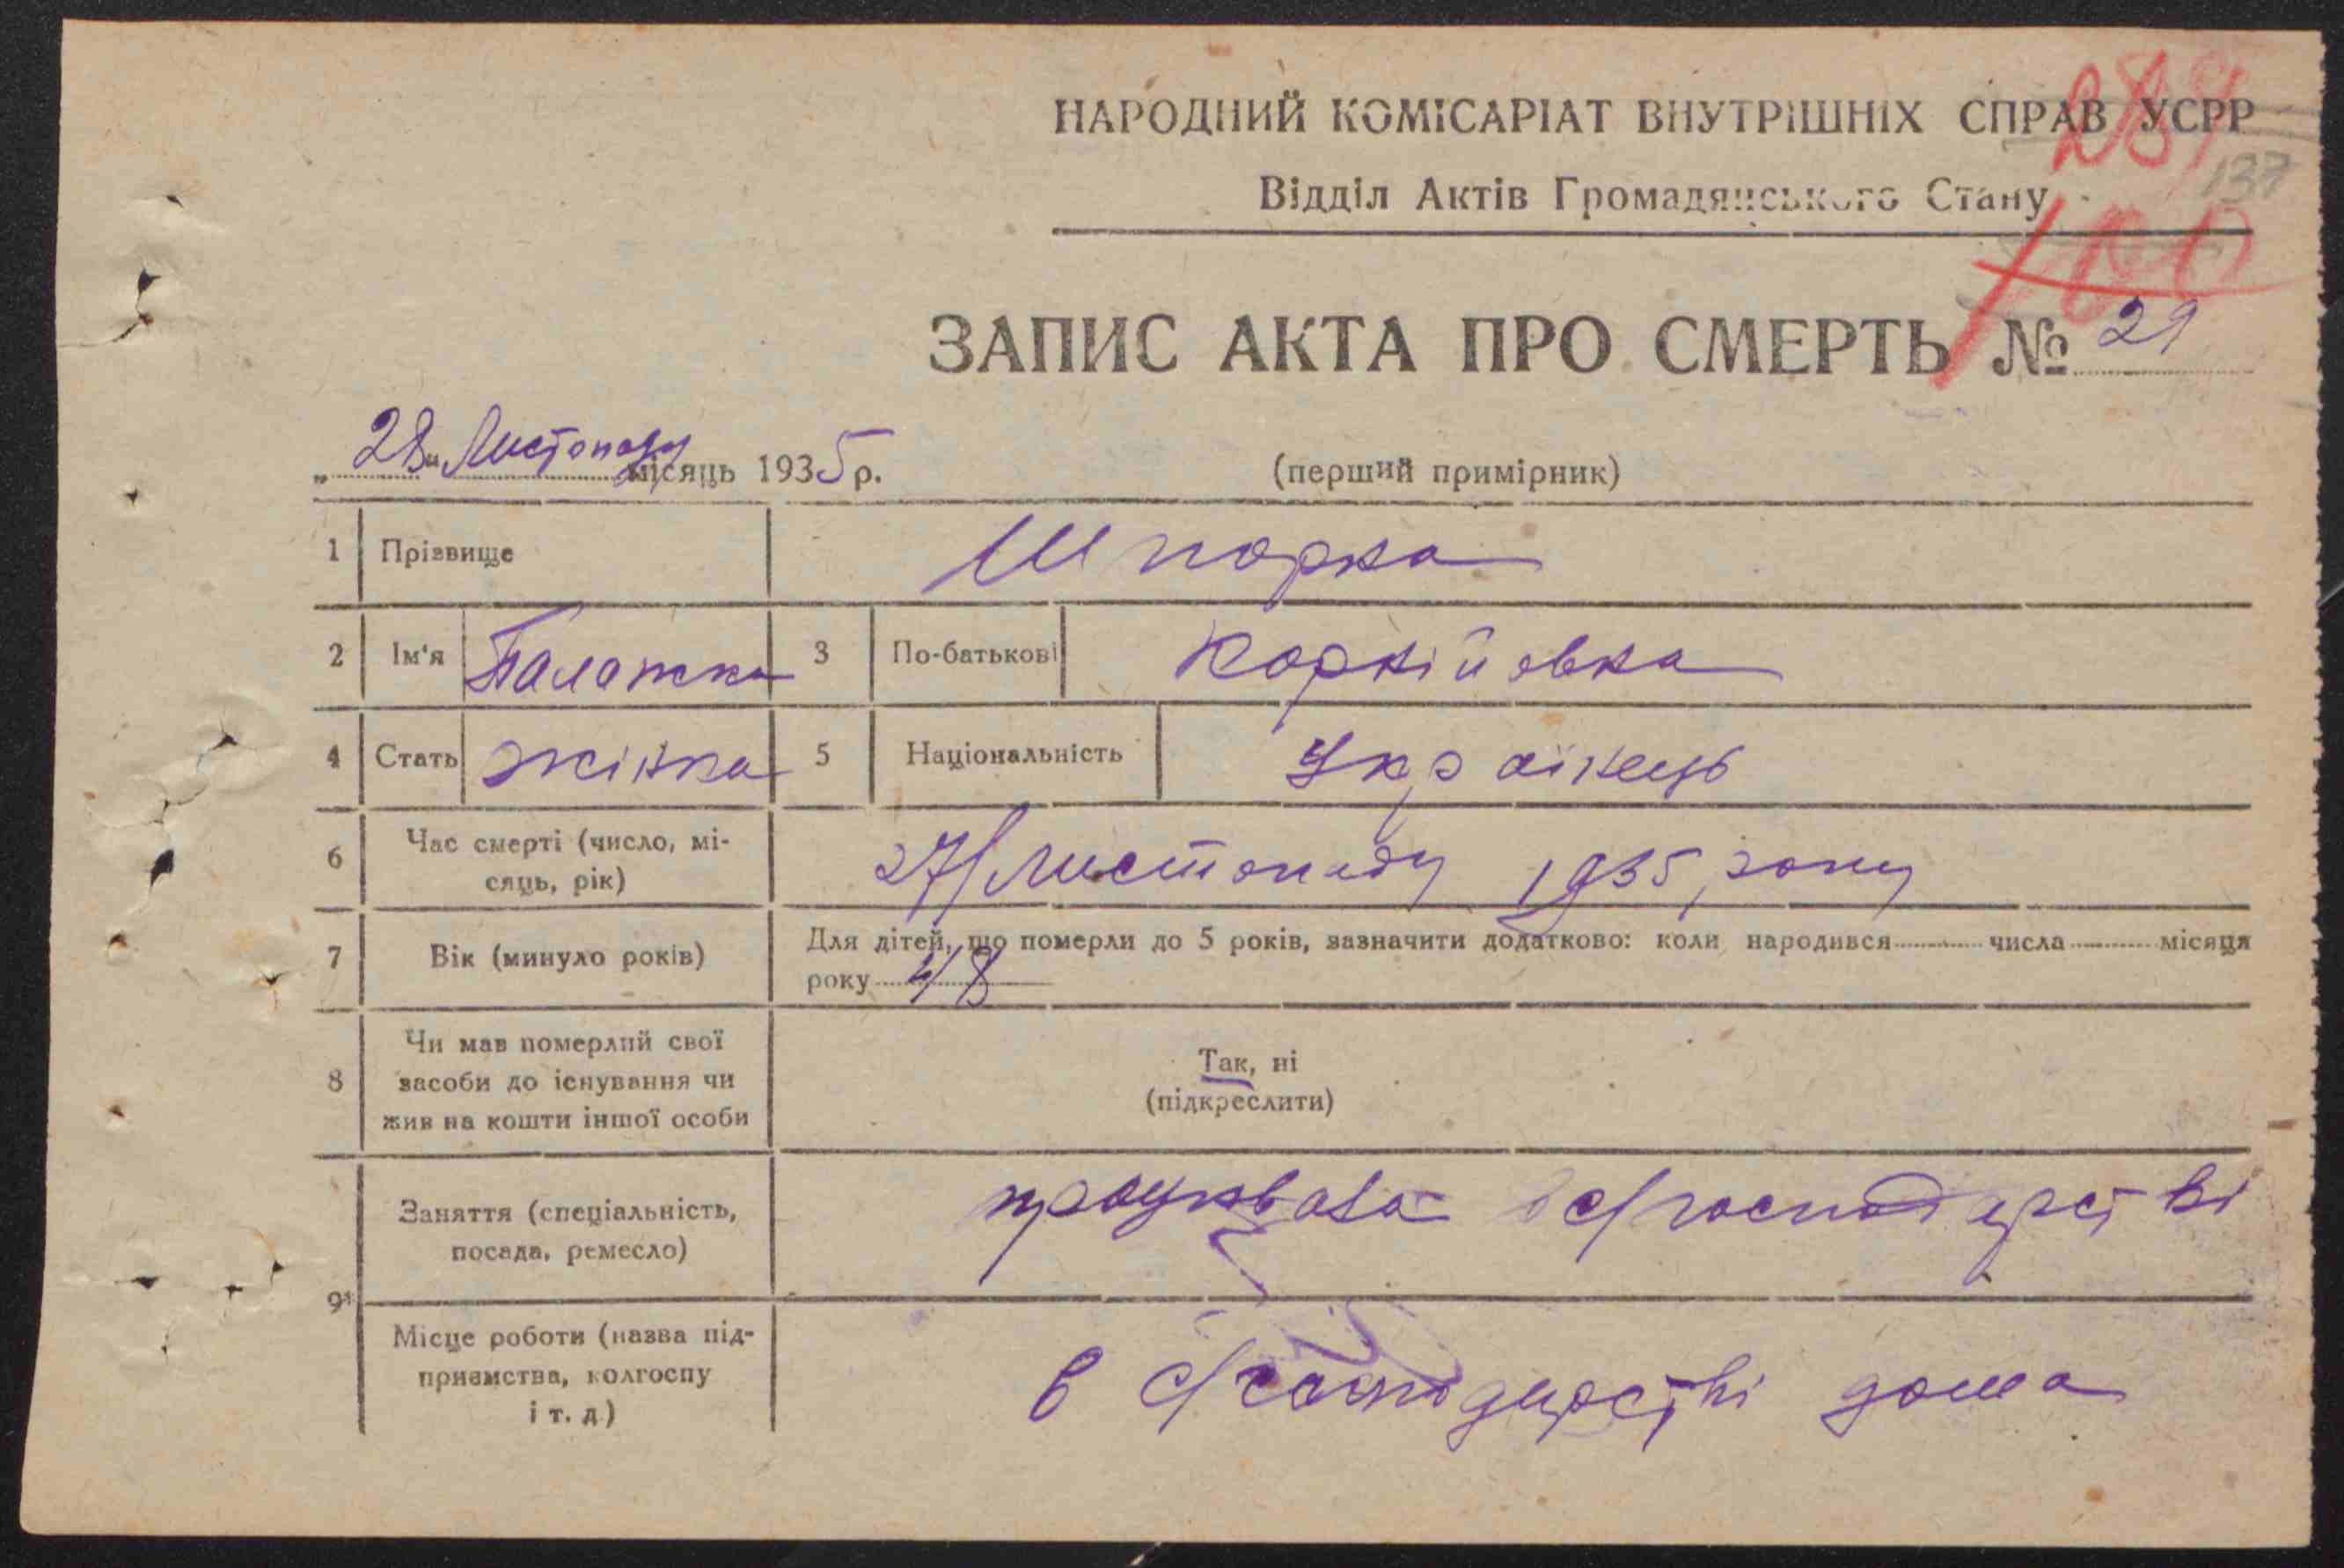 НАРОДНИЙ КОМІСАРІАТ ВНУТРІШНІХ СПРАВ УСРР
137
Відділ Актів Громадянського Стану
ЗАПИС АКТА ПРО СМЕРТЬ № 29
„28“ Листопаду місяць 1935 р.
(перший примірник)
1 Прізвище Шпорка
2 Ім'я Палажка 3 По-батькові Корнійовна
4 Стать жінка 5 Національність Українець
6 Час смерті (число, мі-
сяць, рік) 27/Листопаду 1935 року
7 Вік (минуло років) Для дітей, що померли до 5 років, зазначити додатково: коли народився числа місяця
року 48
8 Чи мав померлий свої
засоби до існування чи
жив на кошти іншої особи
Так, ні
(підкреслити)
9 Заняття (спеціальність,
посада, ремесло) працювала в с/господарстві
Місце роботи (назва під-
приємства, колгоспу
і т. д) в с/господарстві дома